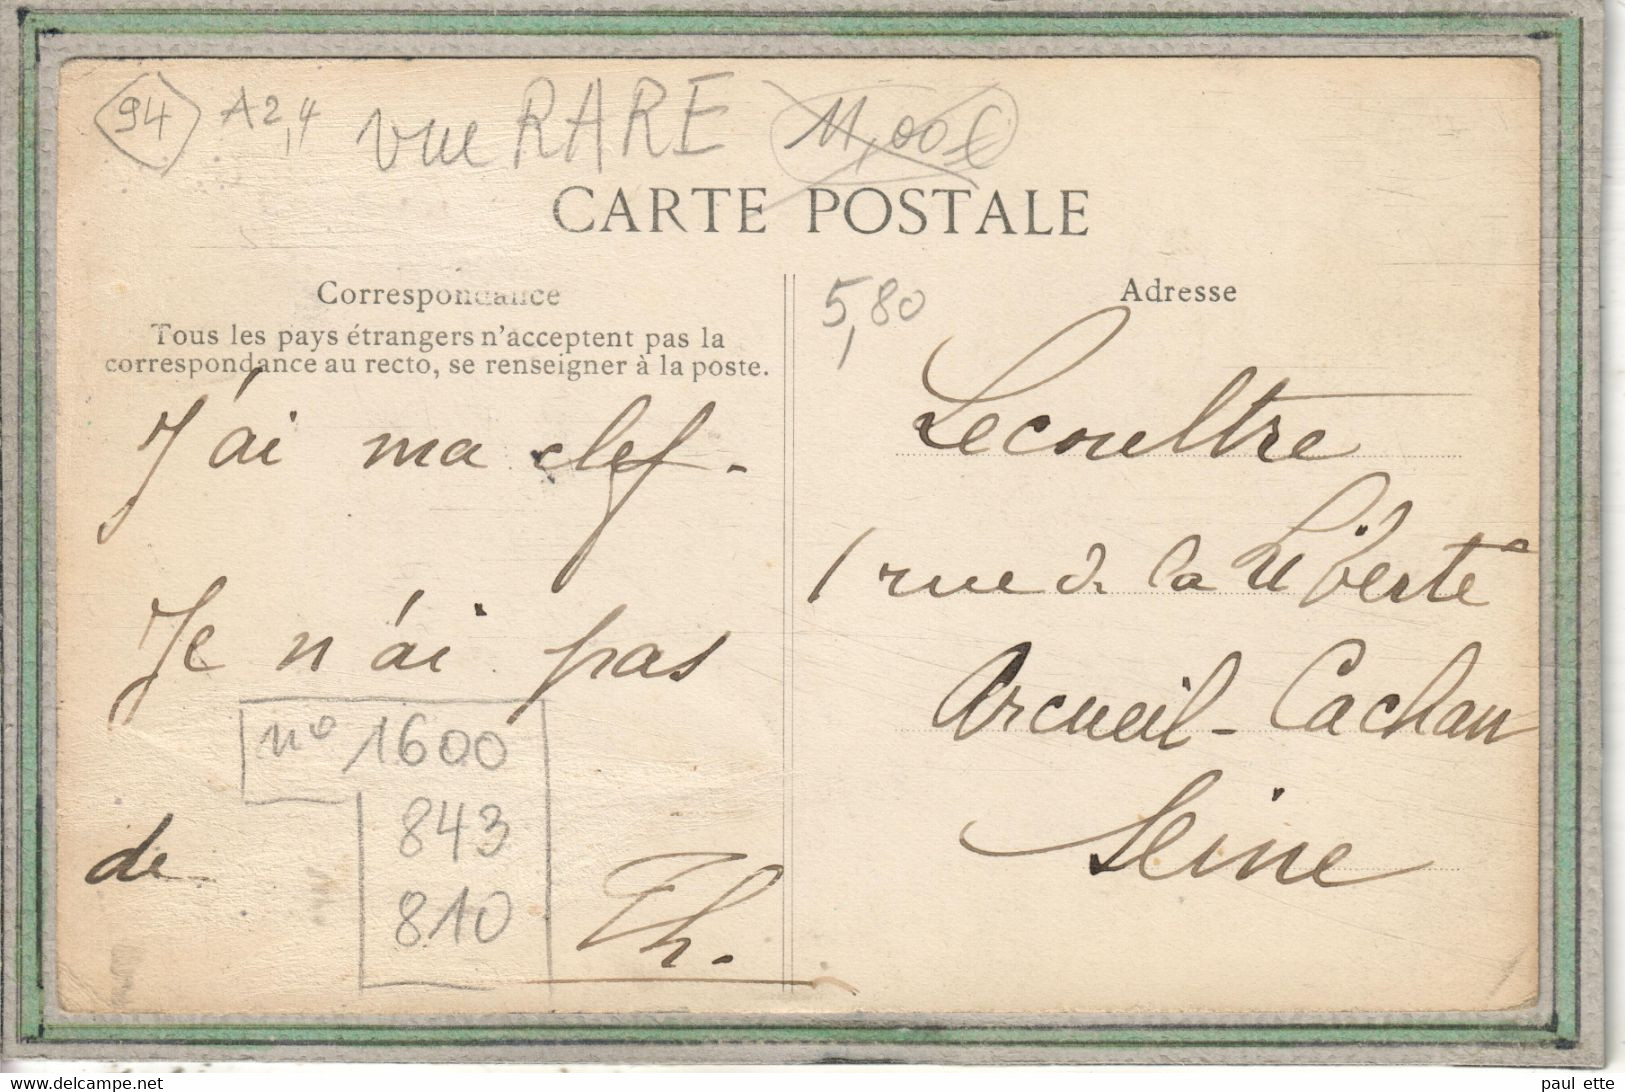 94 A2,4 vue RARE 11,00€
CARTE POSTALE
Correspondance
Tous les pays étrangers n'acceptent pas la
correspondance au recto, se renseigner à la poste.
J'ai ma clef.
Je n'ai pas
de
Th.
n° 1600
843
810
5,80
Adresse
Lecoultre
1 rue de la Liberté
Arcueil-Cachan
Seine
www.delcampe.net
paul ette